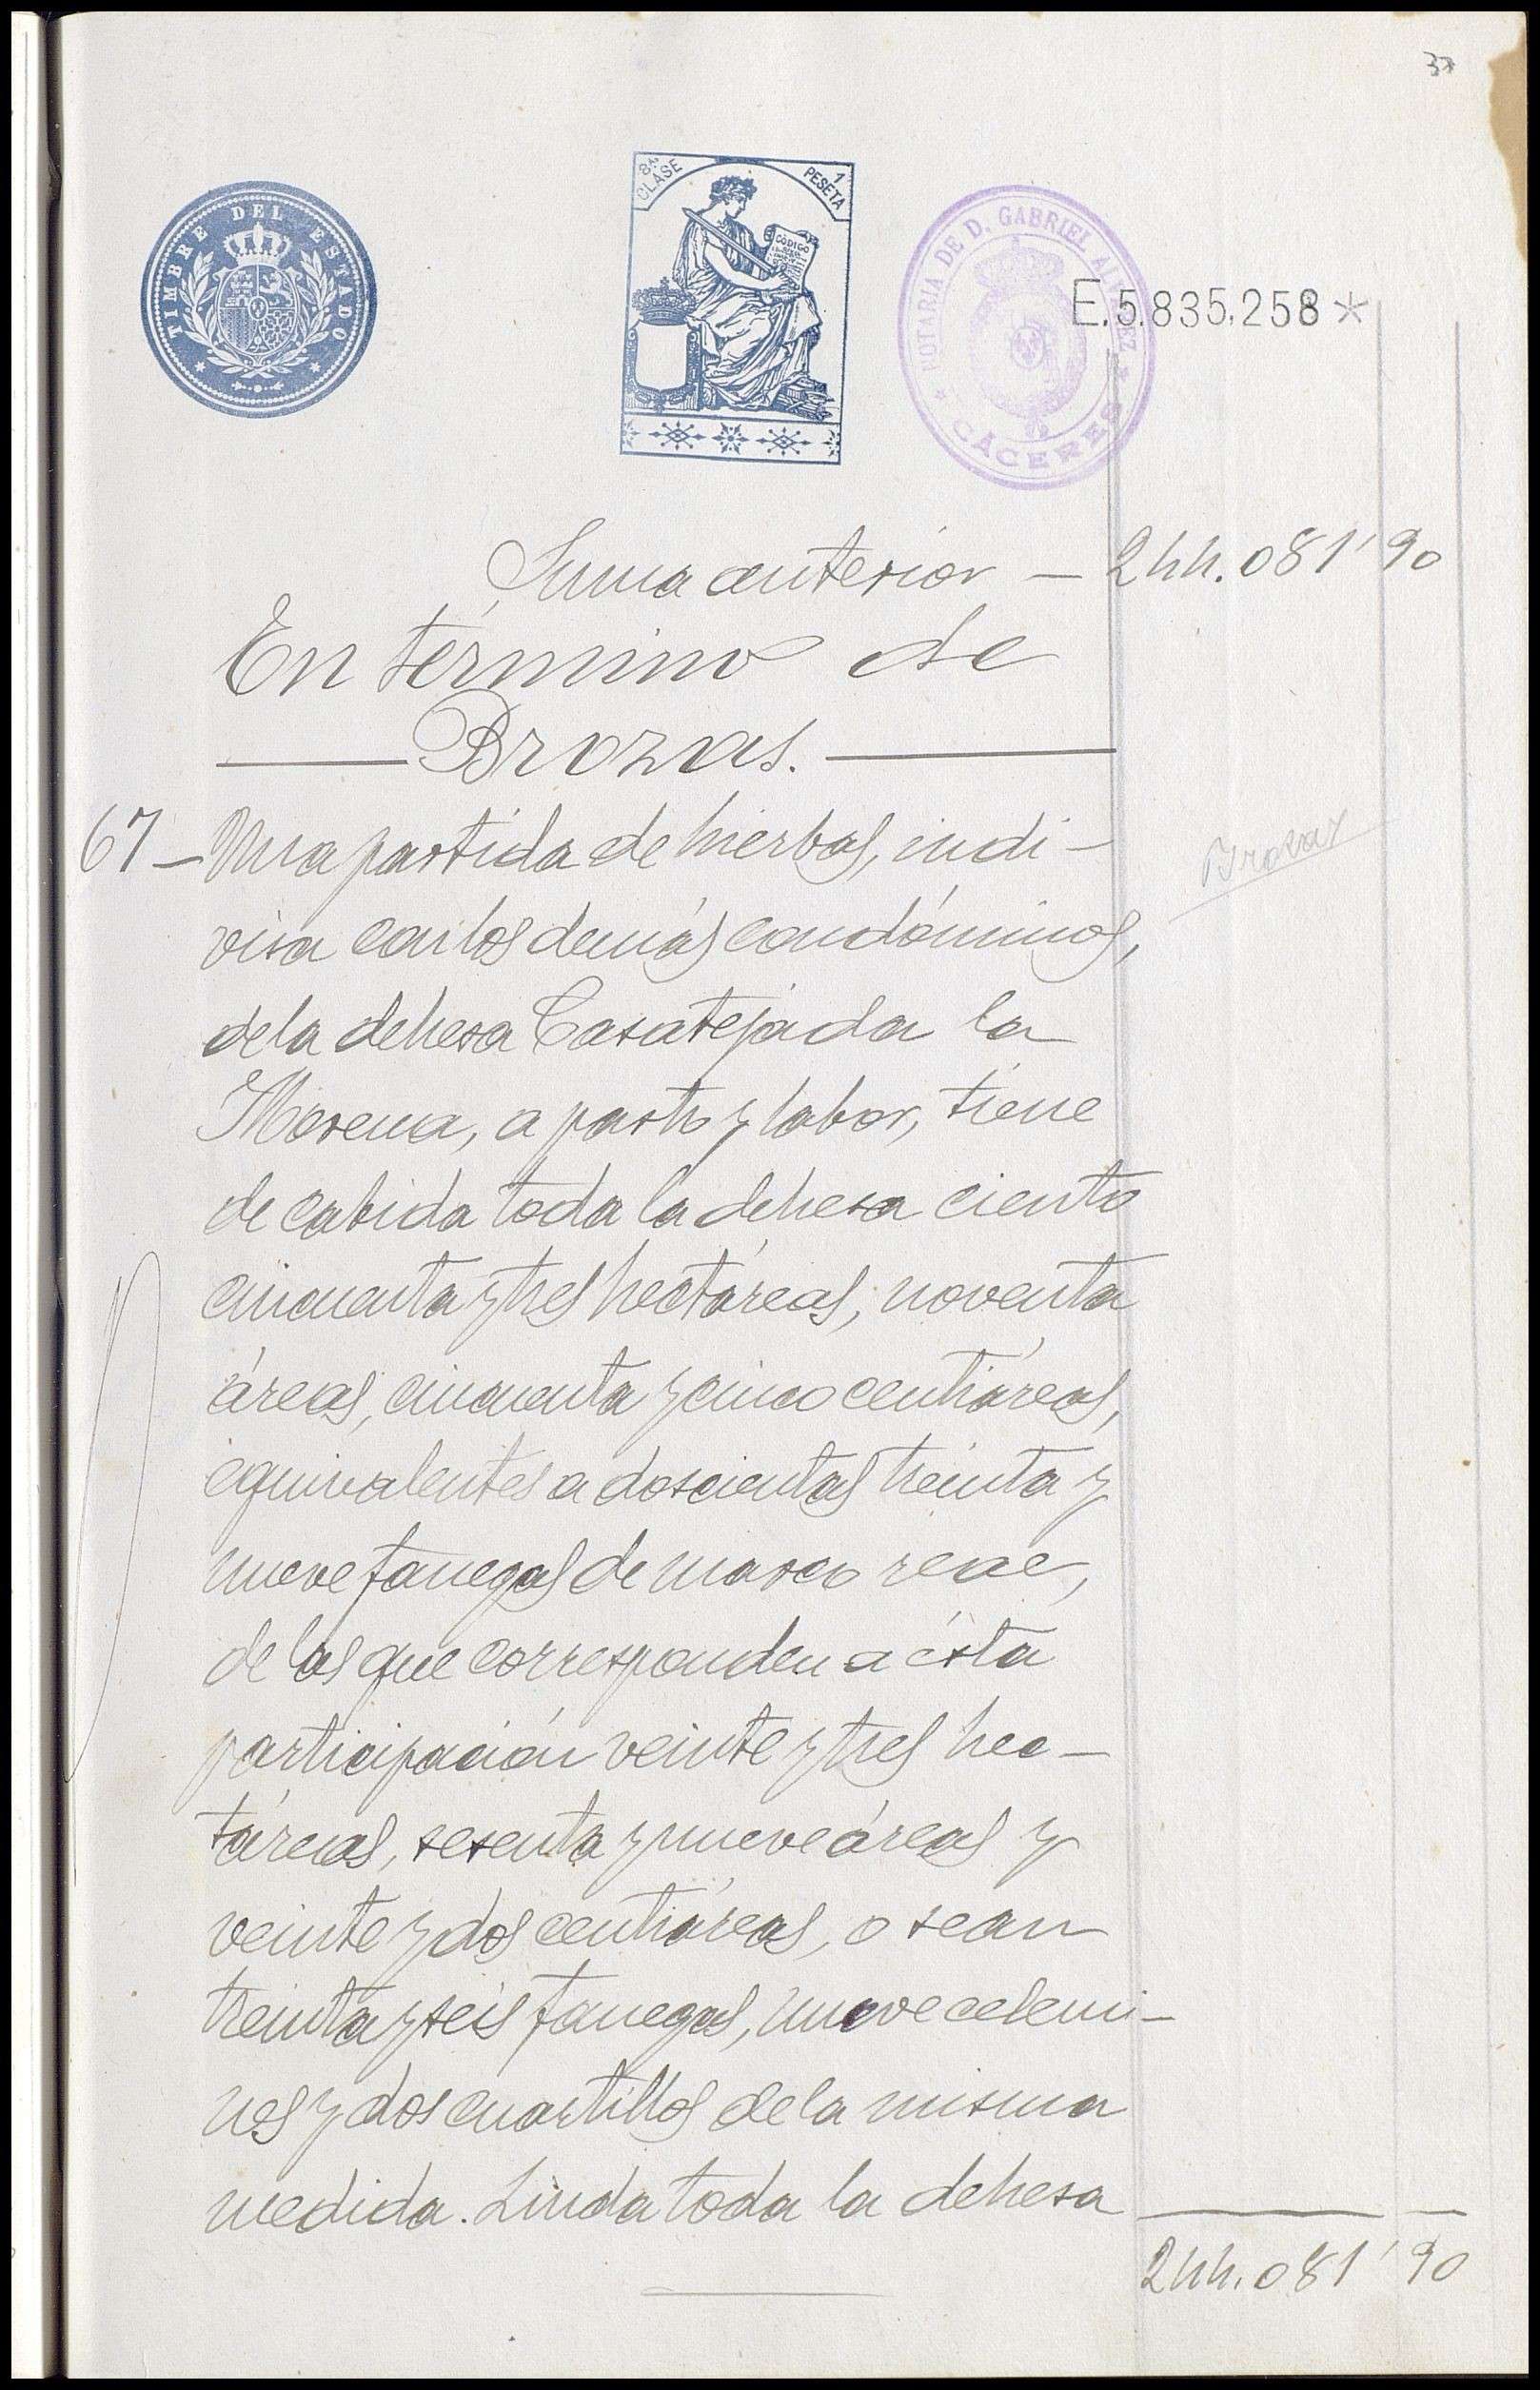 37
TIMBRE DEL ESTADO
8ª CLASE
1 PESETA
CÓDIGO
NOTARIA DE D. GABRIEL ALVAREZ
CÁCERES
E.5.835.258*
Suma anterior — 244.081'90
En término de
Brozas.
Brozas
67 — Una partida de hierbas, indi-
visa con los demás condóminos,
de la dehesa Casatejada la
Morena, a pasto y labor, tiene
de cabida toda la dehesa ciento
cincuenta y tres hectáreas, noventa
áreas, cincuenta y cinco centiáreas,
equivalentes a doscientas treinta y
nueve fanegas de marco real,
de las que corresponden a ésta
participación veinte y tres hec-
táreas, sesenta y nueve áreas y
veinte y dos centiáreas, o sean
treinta y seis fanegas, nueve celemi-
nes y dos cuartillos de la misma
medida. Linda toda la dehesa
244.081'90